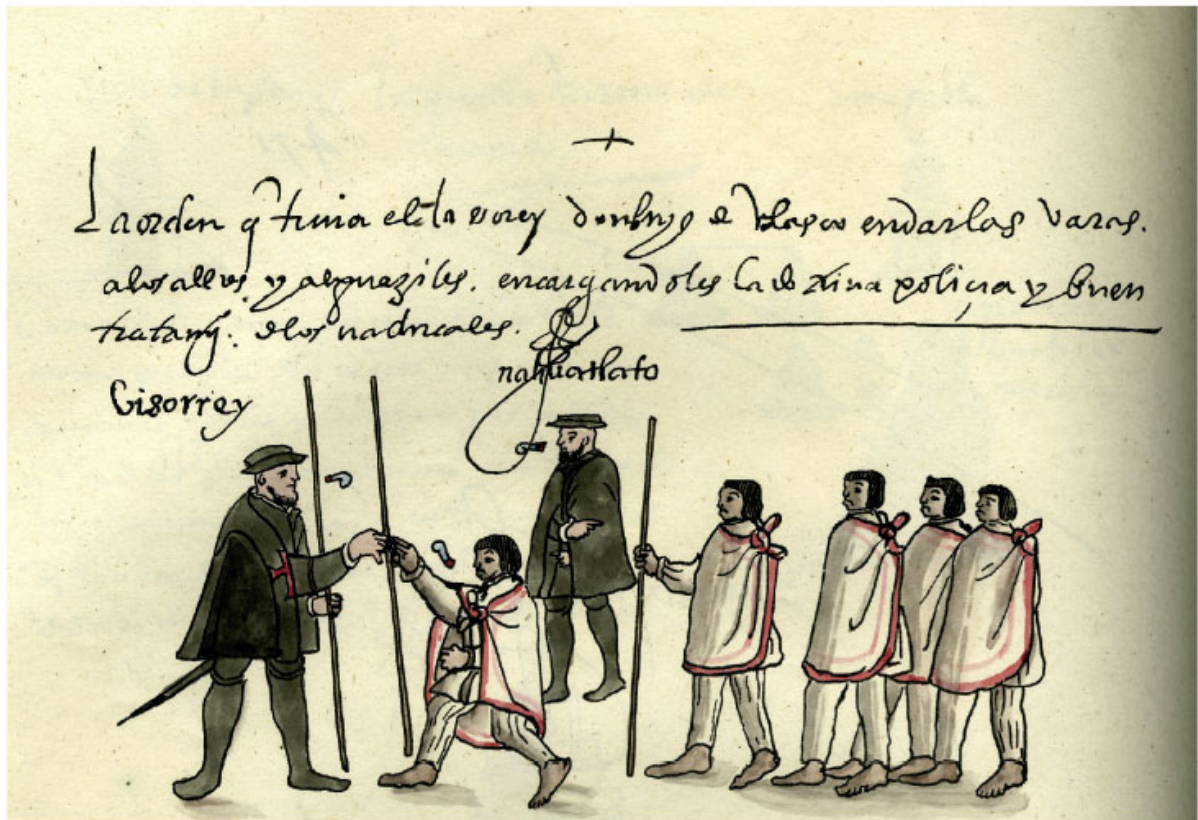 La orden q̄ tenia el yllᵉ visorey don luys de velasco en dar las varas.
a los alldes. y alguaziles. encargandoles la dotrina policia y buen
tratamyº. de los naturales.
nahuatlato
Visorrey